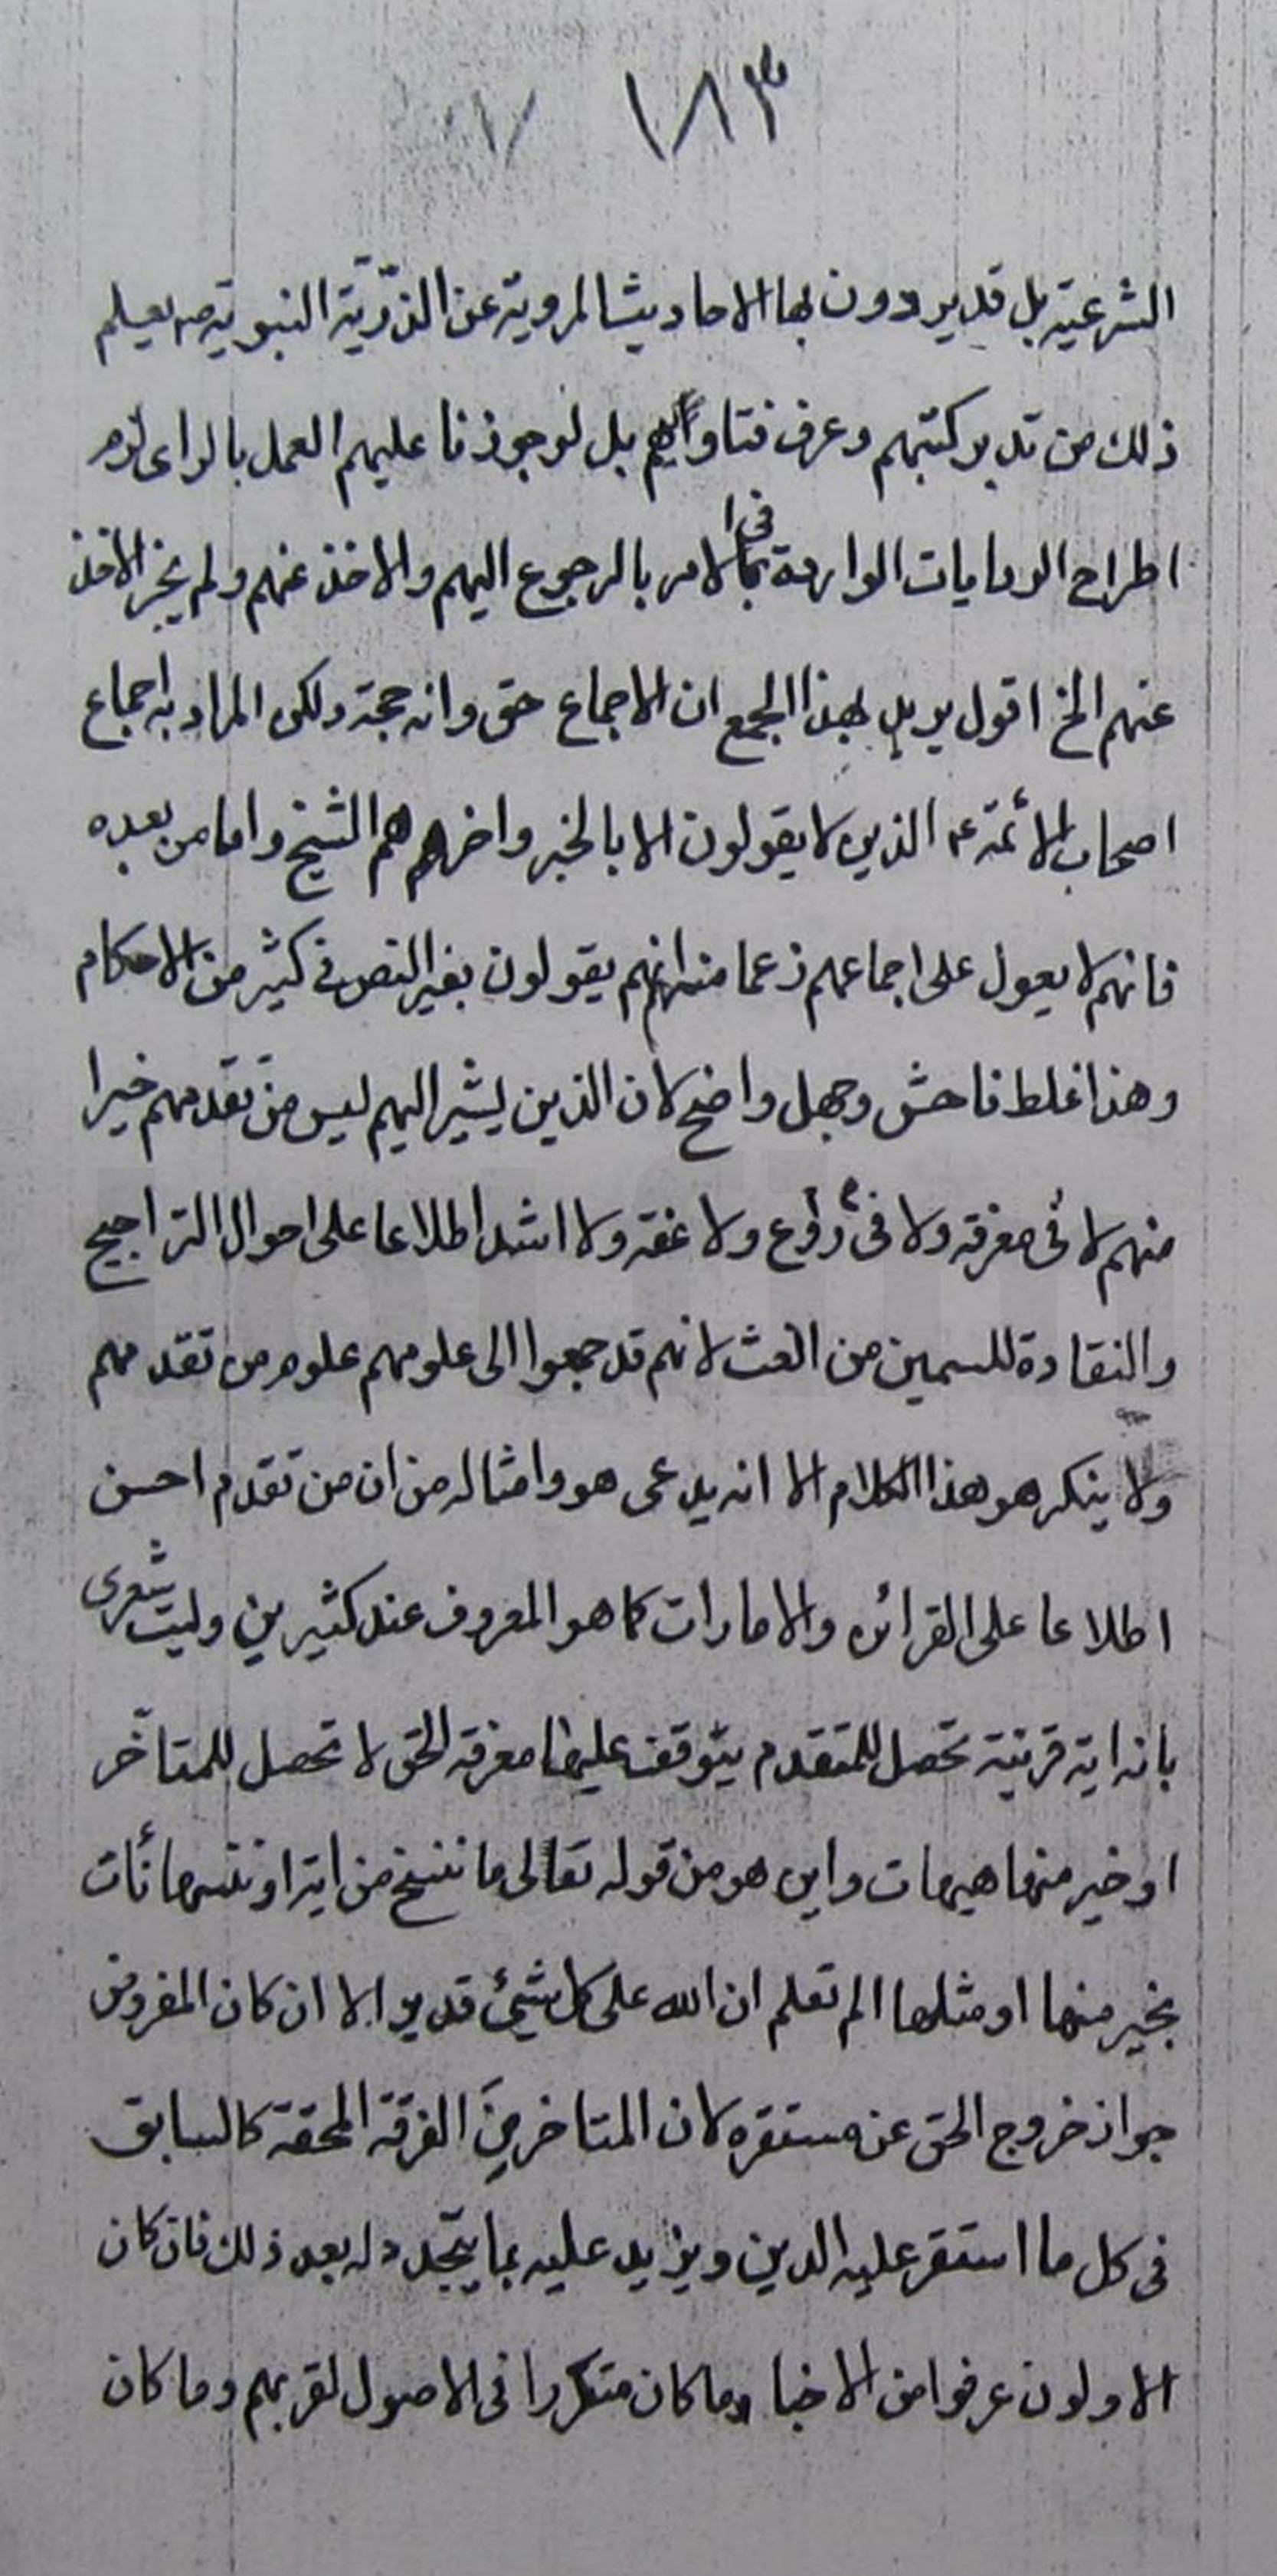 ١٨٣
الشرعية بل قد يردون بها الاحاديث المروية عن الذرّيّة النبوية ص يعلم
ذلك من تدبر كتبهم وعرف فتاواهم بل لو جوزنا عليهم العمل بالراى لزم
اطراح الروايات الواردة في الامر بالرجوع اليهم والاخذ عنهم ولم يجز الاخذ
عنهم الخ اقول يريد بهذا الجمع ان الاجماع حق وانه حجة ولكن المراد به اجماع
اصحاب الائمة ع الذين لا يقولون الا بالخبر واخرهم هم الشيخ واما من بعده
فانهم لا يعول على اجماعهم زعما منه انهم يقولون بغير النص في كثير من الاحكام
وهذا غلط فاحش وجهل واضح لان الذين يشير اليهم ليس من تقدمهم خيرا
منهم لا في معرفة ولا في ورع ولا عفة ولا اشد اطلاعا على احوال التراجيح
والنقادة للسمين من الغث لانهم قد جمعوا الى علومهم علوم من تقدمهم
ولا ينكر هو هذا الكلام الا انه يدعى هو وامثاله من ان من تقدم احسن
اطلاعا على القرائن والامارات كما هو المعروف عند كثيرين وليت شعرى
بانه اية قرينة تحصل للمتقدم يتوقف عليها معرفة الحق لا تحصل للمتاخّر
او خير منها هيهات واين هو من قوله تعالى ما ننسخ من اية او ننسها نأت
بخير منها او مثلها الم تعلم ان الله على كل شيئ قدير الا ان كان المفروض
جواز خروج الحق عن مستقره لان المتاخر مِنَ الفرقة المحقة كالسابق
فى كل ما استقر عليه الدين ويزيد عليه بما يتجّدد له بعد ذلك فان كان
الاولون عرفوا من الاخبار ما كان متكررا فى الاصول لقربهم وما كان